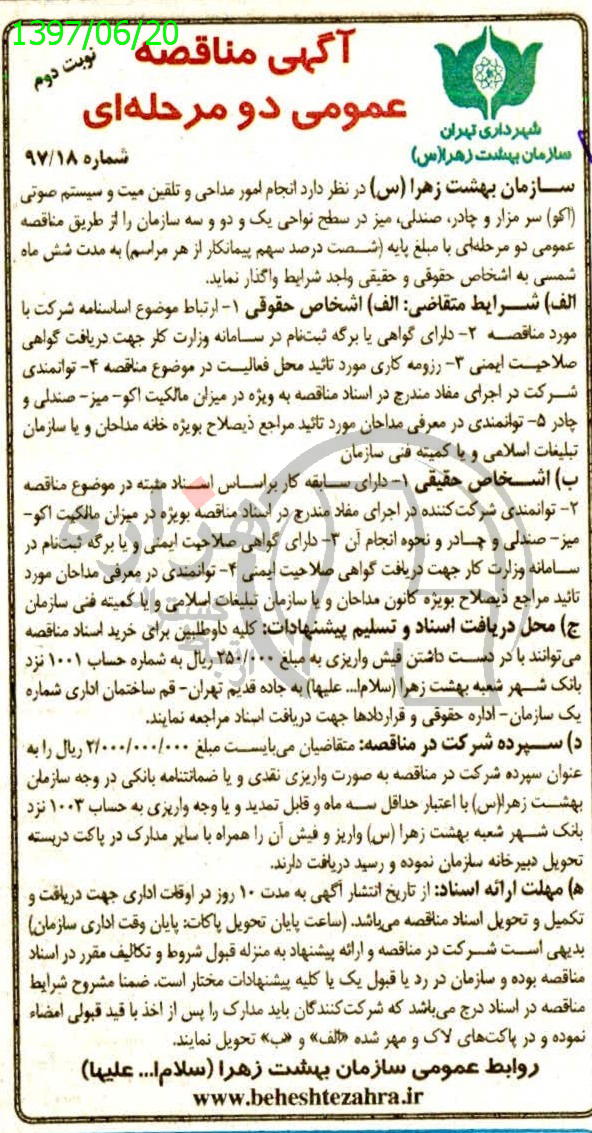 1397/06/20
نوبت دوم
آگهی مناقصه
عمومی دو مرحله‌ای
شهرداری تهران
سازمان بهشت زهرا(س)
شماره ۹۷/۱۸
سازمان بهشت زهرا (س) در نظر دارد انجام امور مداحی و تلقین میت و سیستم صوتی
(اکو) سر مزار و چادر، صندلی، میز در سطح نواحی یک و دو و سه سازمان را از طریق مناقصه
عمومی دو مرحله‌ای با مبلغ پایه (شصت درصد سهم پیمانکار از هر مراسم) به مدت شش ماه
شمسی به اشخاص حقوقی و حقیقی واجد شرایط واگذار نماید.
الف) شرایط متقاضی: الف) اشخاص حقوقی ۱- ارتباط موضوع اساسنامه شرکت با
مورد مناقصه ۲- دارای گواهی یا برگه ثبت‌نام در سامانه وزارت کار جهت دریافت گواهی
صلاحیت ایمنی ۳- رزومه کاری مورد تائید محل فعالیت در موضوع مناقصه ۴- توانمندی
شرکت در اجرای مفاد مندرج در اسناد مناقصه به ویژه در میزان مالکیت اکو- میز- صندلی و
چادر ۵- توانمندی در معرفی مداحان مورد تائید مراجع ذیصلاح بویژه خانه مداحان و یا سازمان
تبلیغات اسلامی و یا کمیته فنی سازمان
ب) اشخاص حقیقی ۱- دارای سابقه کار براساس اسناد مثبته در موضوع مناقصه
۲- توانمندی شرکت‌کننده در اجرای مفاد مندرج در اسناد مناقصه بویژه در میزان مالکیت اکو-
میز- صندلی و چادر و نحوه انجام آن ۳- دارای گواهی صلاحیت ایمنی و یا برگه ثبت‌نام در
سامانه وزارت کار جهت دریافت گواهی صلاحیت ایمنی ۴- توانمندی در معرفی مداحان مورد
تائید مراجع ذیصلاح بویژه کانون مداحان و یا سازمان تبلیغات اسلامی و یا کمیته فنی سازمان
ج) محل دریافت اسناد و تسلیم پیشنهادات: کلیه داوطلبین برای خرید اسناد مناقصه
می‌توانند با در دست داشتن فیش واریزی به مبلغ ۲۵۰/۰۰۰ ریال به شماره حساب ۱۰۰۱ نزد
بانک شهر شعبه بهشت زهرا (سلام‌ا... علیها) به جاده قدیم تهران- قم ساختمان اداری شماره
یک سازمان- اداره حقوقی و قراردادها جهت دریافت اسناد مراجعه نمایند.
د) سپرده شرکت در مناقصه: متقاضیان می‌بایست مبلغ ۲/۰۰۰/۰۰۰/۰۰۰ ریال را به
عنوان سپرده شرکت در مناقصه به صورت واریزی نقدی و یا ضمانتنامه بانکی در وجه سازمان
بهشت زهرا(س) با اعتبار حداقل سه ماه و قابل تمدید و یا وجه واریزی به حساب ۱۰۰۳ نزد
بانک شهر شعبه بهشت زهرا (س) واریز و فیش آن را همراه با سایر مدارک در پاکت دربسته
تحویل دبیرخانه سازمان نموده و رسید دریافت دارند.
ه) مهلت ارائه اسناد: از تاریخ انتشار آگهی به مدت ۱۰ روز در اوقات اداری جهت دریافت و
تکمیل و تحویل اسناد مناقصه می‌باشد. (ساعت پایان تحویل پاکات: پایان وقت اداری سازمان)
بدیهی است شرکت در مناقصه و ارائه پیشنهاد به منزله قبول شروط و تکالیف مقرر در اسناد
مناقصه بوده و سازمان در رد یا قبول یک یا کلیه پیشنهادات مختار است. ضمنا مشروح شرایط
مناقصه در اسناد درج می‌باشد که شرکت‌کنندگان باید مدارک را پس از اخذ با قید قبولی امضاء
نموده و در پاکت‌های لاک و مهر شده «الف» و «ب» تحویل نمایند.
روابط عمومی سازمان بهشت زهرا (سلام‌ا... علیها)
www.beheshtezahra.ir